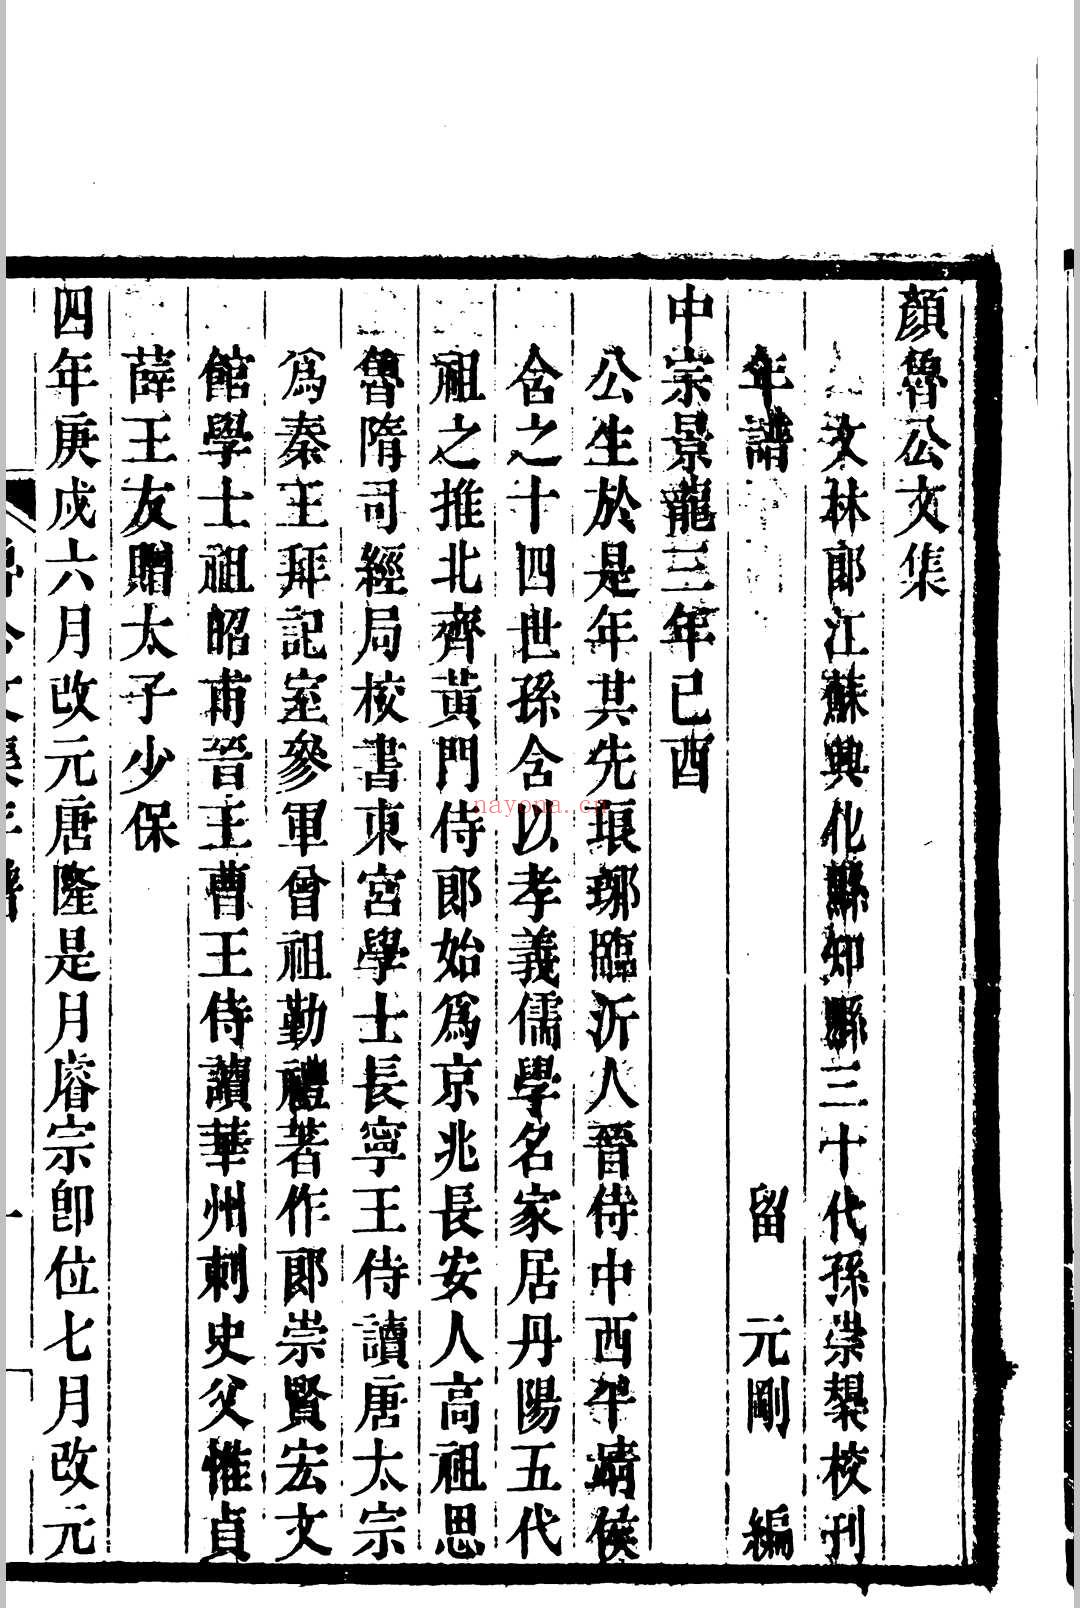 顏魯公文集
文林郎江蘇興化縣知縣三十代孫崇榘校刊
年譜 留元剛編
中宗景龍三年己酉
公生於是年其先琅琊臨沂人晉侍中西平靖侯
含之十四世孫含以孝義儒學名家居丹陽五代
祖之推北齊黃門侍郎始爲京兆長安人高祖思
魯隋司經局校書東宮學士長寧王侍讀唐太宗
爲秦王拜記室參軍曾祖勤禮著作郎崇賢宏文
館學士祖昭甫晉王曹王侍讀華州刺史父惟貞
薛王友贈太子少保
四年庚戌六月改元唐隆是月睿宗卽位七月改元
nayona.cn